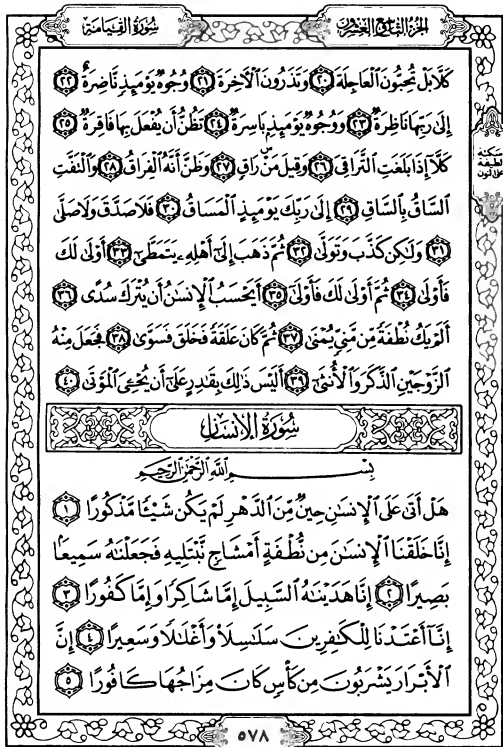 سُورَةُ القِيَامَةِ
الجُزْءُ التَّاسِعُ وَالعِشْرُونَ
كَلَّا بَلْ تُحِبُّونَ ٱلْعَاجِلَةَ ۝٢٠ وَتَذَرُونَ ٱلْآخِرَةَ ۝٢١ وُجُوهٌ يَوْمَئِذٍ نَّاضِرَةٌ ۝٢٢
إِلَىٰ رَبِّهَا نَاظِرَةٌ ۝٢٣ وَوُجُوهٌ يَوْمَئِذٍ بَاسِرَةٌ ۝٢٤ تَظُنُّ أَن يُفْعَلَ بِهَا فَاقِرَةٌ ۝٢٥
كَلَّا إِذَا بَلَغَتِ ٱلتَّرَاقِيَ ۝٢٦ وَقِيلَ مَنْ ۜ رَاقٍ ۝٢٧ وَظَنَّ أَنَّهُ ٱلْفِرَاقُ ۝٢٨ وَٱلْتَفَّتِ
ٱلسَّاقُ بِٱلسَّاقِ ۝٢٩ إِلَىٰ رَبِّكَ يَوْمَئِذٍ ٱلْمَسَاقُ ۝٣٠ فَلَا صَدَّقَ وَلَا صَلَّىٰ
۝٣١ وَلَٰكِن كَذَّبَ وَتَوَلَّىٰ ۝٣٢ ثُمَّ ذَهَبَ إِلَىٰ أَهْلِهِۦ يَتَمَطَّىٰ ۝٣٣ أَوْلَىٰ لَكَ
فَأَوْلَىٰ ۝٣٤ ثُمَّ أَوْلَىٰ لَكَ فَأَوْلَىٰ ۝٣٥ أَيَحْسَبُ ٱلْإِنسَٰنُ أَن يُتْرَكَ سُدًى ۝٣٦
أَلَمْ يَكُ نُطْفَةً مِّن مَّنِيٍّ يُمْنَىٰ ۝٣٧ ثُمَّ كَانَ عَلَقَةً فَخَلَقَ فَسَوَّىٰ ۝٣٨ فَجَعَلَ مِنْهُ
ٱلزَّوْجَيْنِ ٱلذَّكَرَ وَٱلْأُنثَىٰ ۝٣٩ أَلَيْسَ ذَٰلِكَ بِقَٰدِرٍ عَلَىٰ أَن يُحْـِۧىَ ٱلْمَوْتَىٰ ۝٤٠
سكتة
لطيفة
على النون
سُورَةُ الإِنسَانِ
بِسْمِ ٱللَّهِ ٱلرَّحْمَٰنِ ٱلرَّحِيمِ
هَلْ أَتَىٰ عَلَى ٱلْإِنسَٰنِ حِينٌ مِّنَ ٱلدَّهْرِ لَمْ يَكُن شَيْـًٔا مَّذْكُورًا ۝١
إِنَّا خَلَقْنَا ٱلْإِنسَٰنَ مِن نُّطْفَةٍ أَمْشَاجٍ نَّبْتَلِيهِ فَجَعَلْنَٰهُ سَمِيعًۢا
بَصِيرًا ۝٢ إِنَّا هَدَيْنَٰهُ ٱلسَّبِيلَ إِمَّا شَاكِرًا وَإِمَّا كَفُورًا ۝٣
إِنَّآ أَعْتَدْنَا لِلْكَٰفِرِينَ سَلَٰسِلَا۟ وَأَغْلَٰلًا وَسَعِيرًا ۝٤ إِنَّ
ٱلْأَبْرَارَ يَشْرَبُونَ مِن كَأْسٍ كَانَ مِزَاجُهَا كَافُورًا ۝٥
٥٧٨